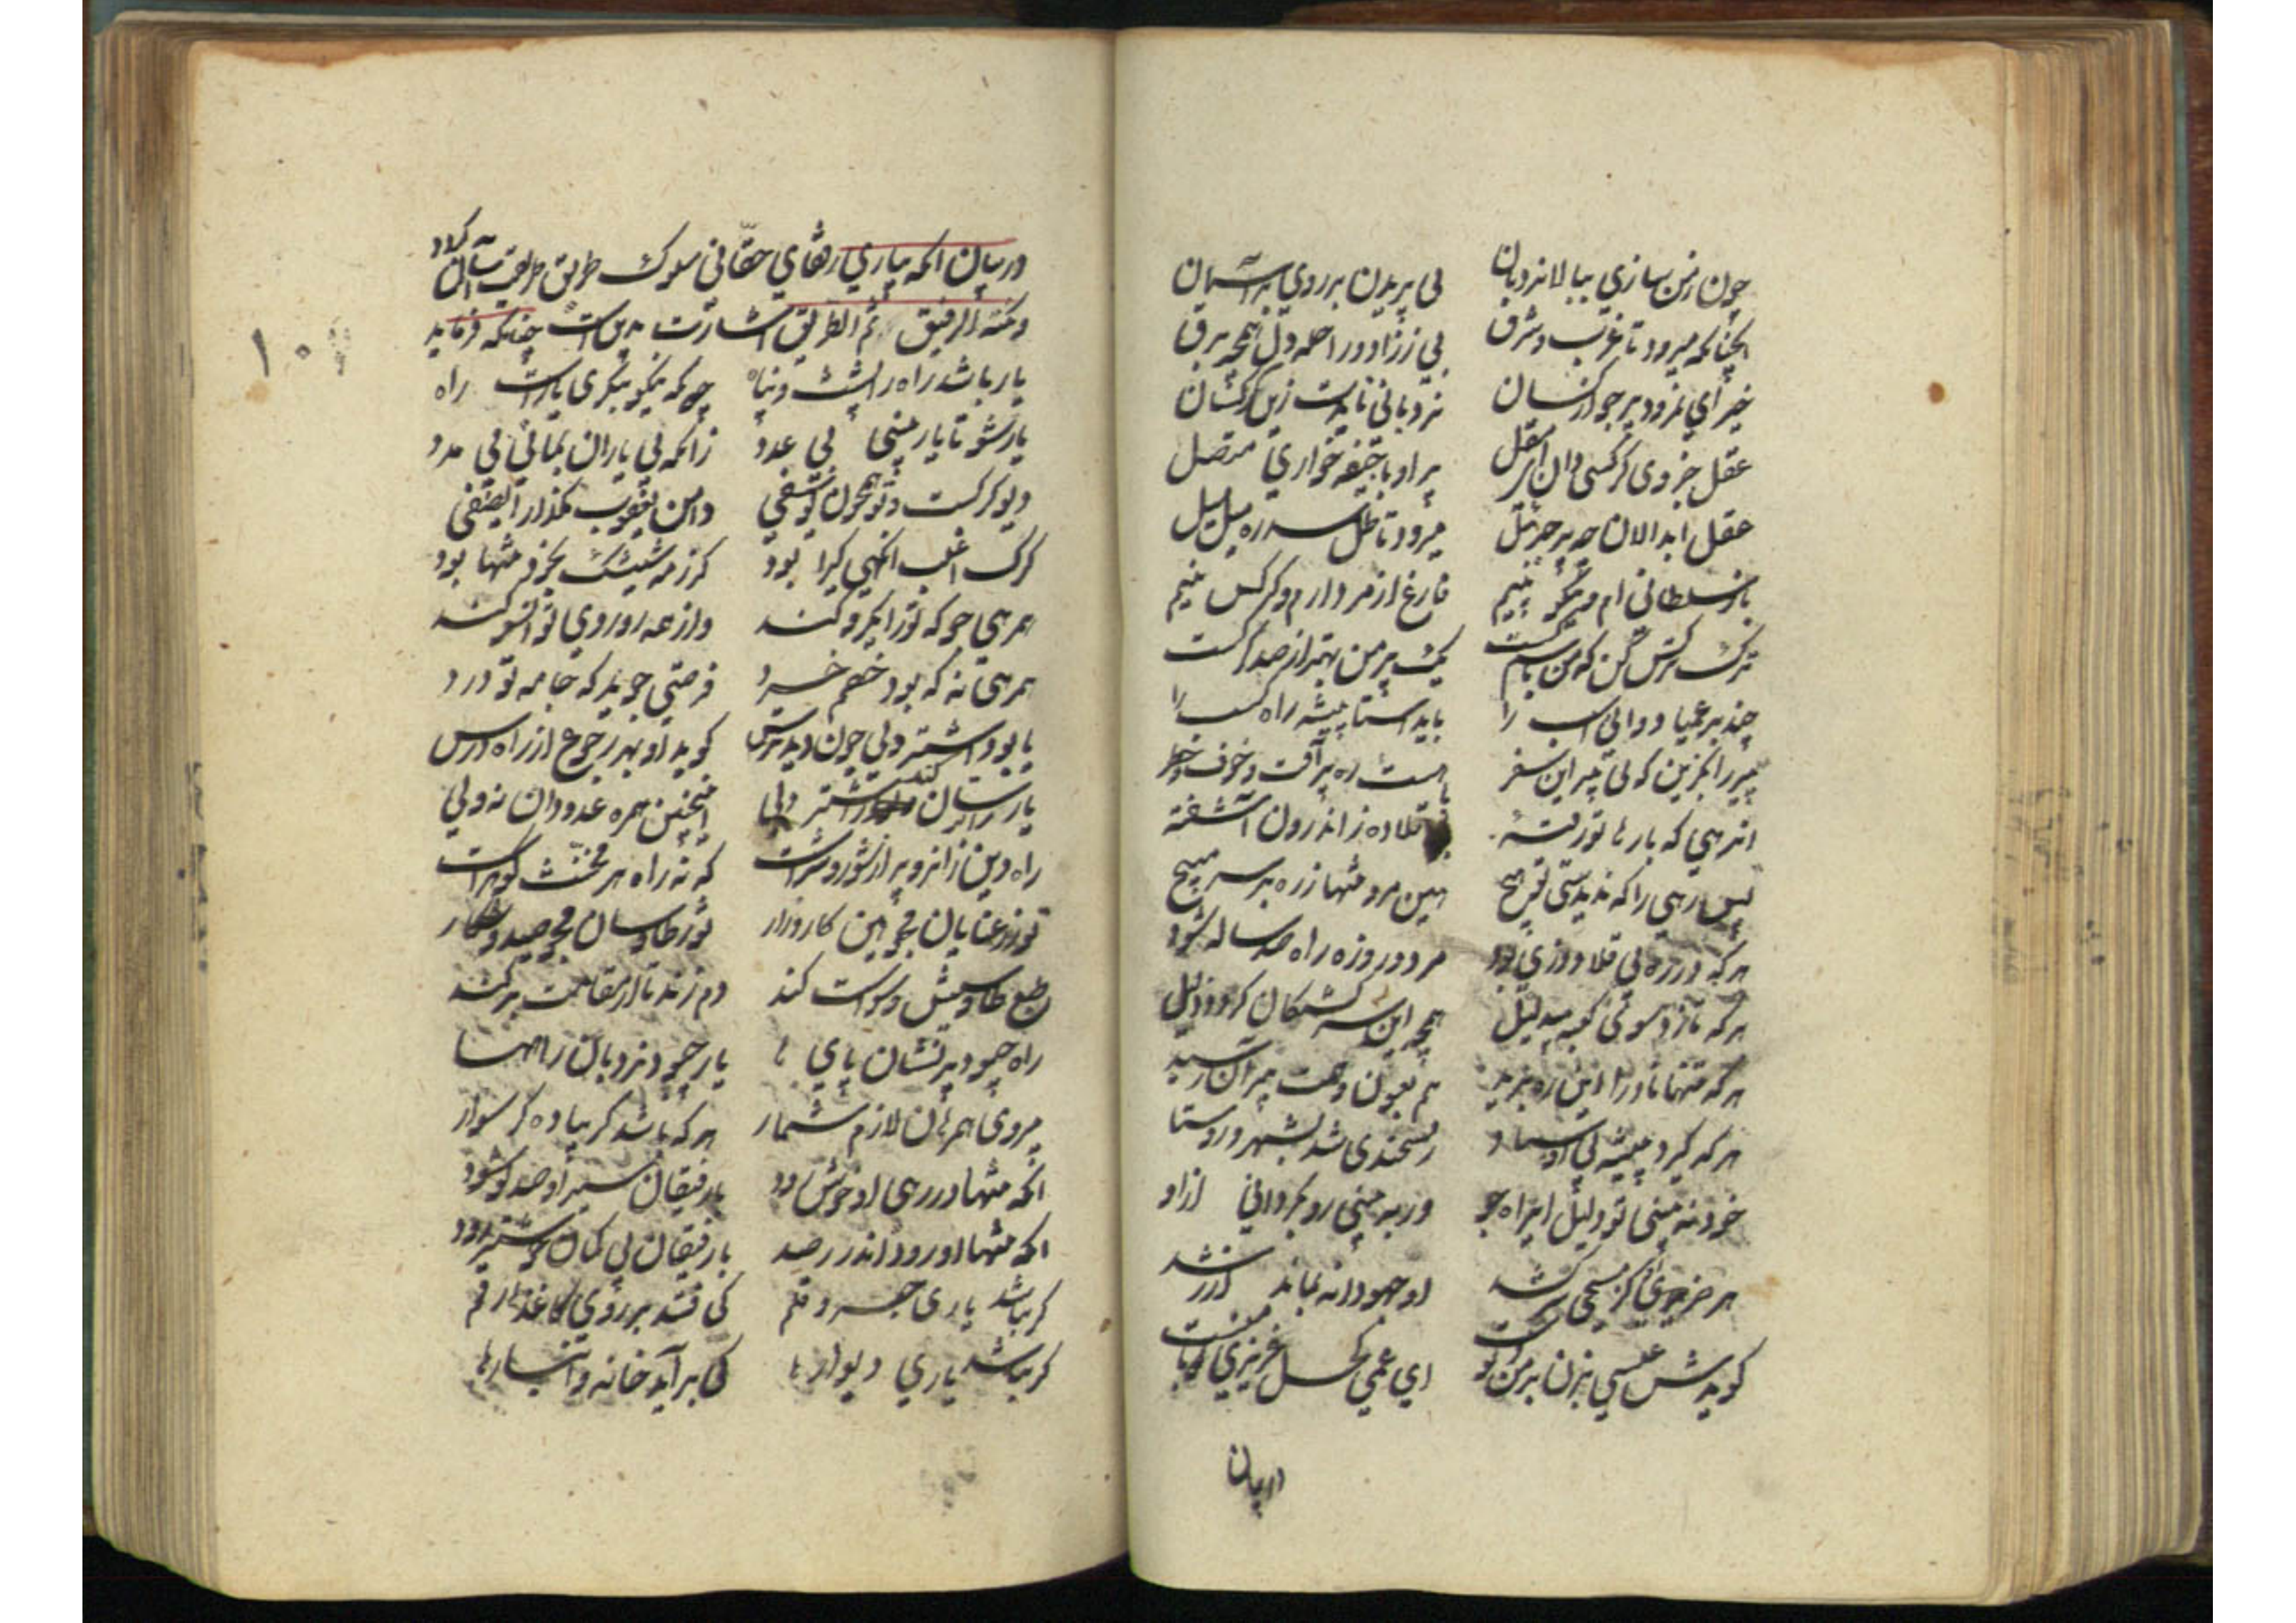 چون ز من سازی ببالا نردبان بی پریدن بر روی بر آسمان
آنچنانکه میرود تا غرب و شرق بی ز زاد و راحله دل همچو برق
خیز ای نمرود پر جو از کسان نردبانی نایدت زین کرکسان
عقل جزوی کرکس دان ای مقل پر او با جیفه خواری متصل
عقل ابدالان چو پر جبرئیل میپرد تا ظل سدره میل میل
باز سلطانی ام و نیکو پیم فارغ از مردارم و کرکس نیم
ترک کرکس کن که من باشم کست یک پر من بهتر از صد کرکست
چند بر عمیا دوانی اسب را باید استا پیشه راه کسب را
پیر را بگزین که بی پیر این سفر هست ره پر آفت و خوف و خطر
آنرهی که بارها تو رفته بی قلاوز اندرون آشفته
پس رهی را که ندیدستی تو هیچ هین مرو تنها ز رهبر سر مپیچ
هر که در ره بی قلاوزی بود هر دو روزه راه صد ساله شود
هر که تازد سوی کعبه بیدلیل همچو این سرکشتکان کردد ذلیل
هر که تنها نادرا این ره برید هم بعون و همت پیران رسید
هر که کیرد پیشه بی اوستاد ریشخندی شد بشهر و روستا
خود نه بینی تو دلیل ایراه جو ور به بینی رو بگردانی ازو
هر خری کز مسیحی سرکشد او جهودانه بماند از رشد
کویدش عیسی بزن بر من دو دست ای عمی کحل عزیزی با منست
در بیان
در بیان آنکه بیاری رفقای حقانی سلوک طریق طریقت آسان کردد
ونکته الرفیق ثم الطریق اشارت بدین است چنانکه فرماید
۱۰
یار باشد راه را پشت و پناه چونکه نیکو بنگری یارست راه
یار شو تا یار بینی بی عدد زانکه بی یاران بمانی بی مدد
دیو کرکست و تو همچون یوسفی دامن یعقوب مگذار ای صفی
کرک اغلب آنگهی کیرا بود کز رمه شیشک بخود تنها بود
همرهی جو که تو را نیرو کند
همرهی نه که بود خصم خرد فرصتی جوید که جامه تو درد
یا بود اشتر دلی چون دید ترس کوید او بهر رجوع از راه درس
یار را ترسان کند ز اشتر دلی اینچنین همره عدو دان نه ولی
راه دین زانرو پر از شور و شرست که نه راه هر مخنث کوهرست
تو ز رعنایان مجو هین کارزار تو ز طاوسان مجو صید و شکار
طبع طاوسیش وسواست کند دم زند تا از مقامت برکند
راه چبود پر نشان پای ها یار چبود نردبان رایها
میروی همرهان لازم شمار هر که باشد گر پیاده گر سوار
آنکه تنها در رهی او خوش رود با رفیقان سیر او صد تو شود
آنکه تنها او رود اندر رصد با رفیقان بی کمان خوشتر رود
کر نباشد یاری حبر و قلم کی فتد بر روی کاغذها رقم
کر نباشد یاری دیوارها کی برآید خانه و انبارها